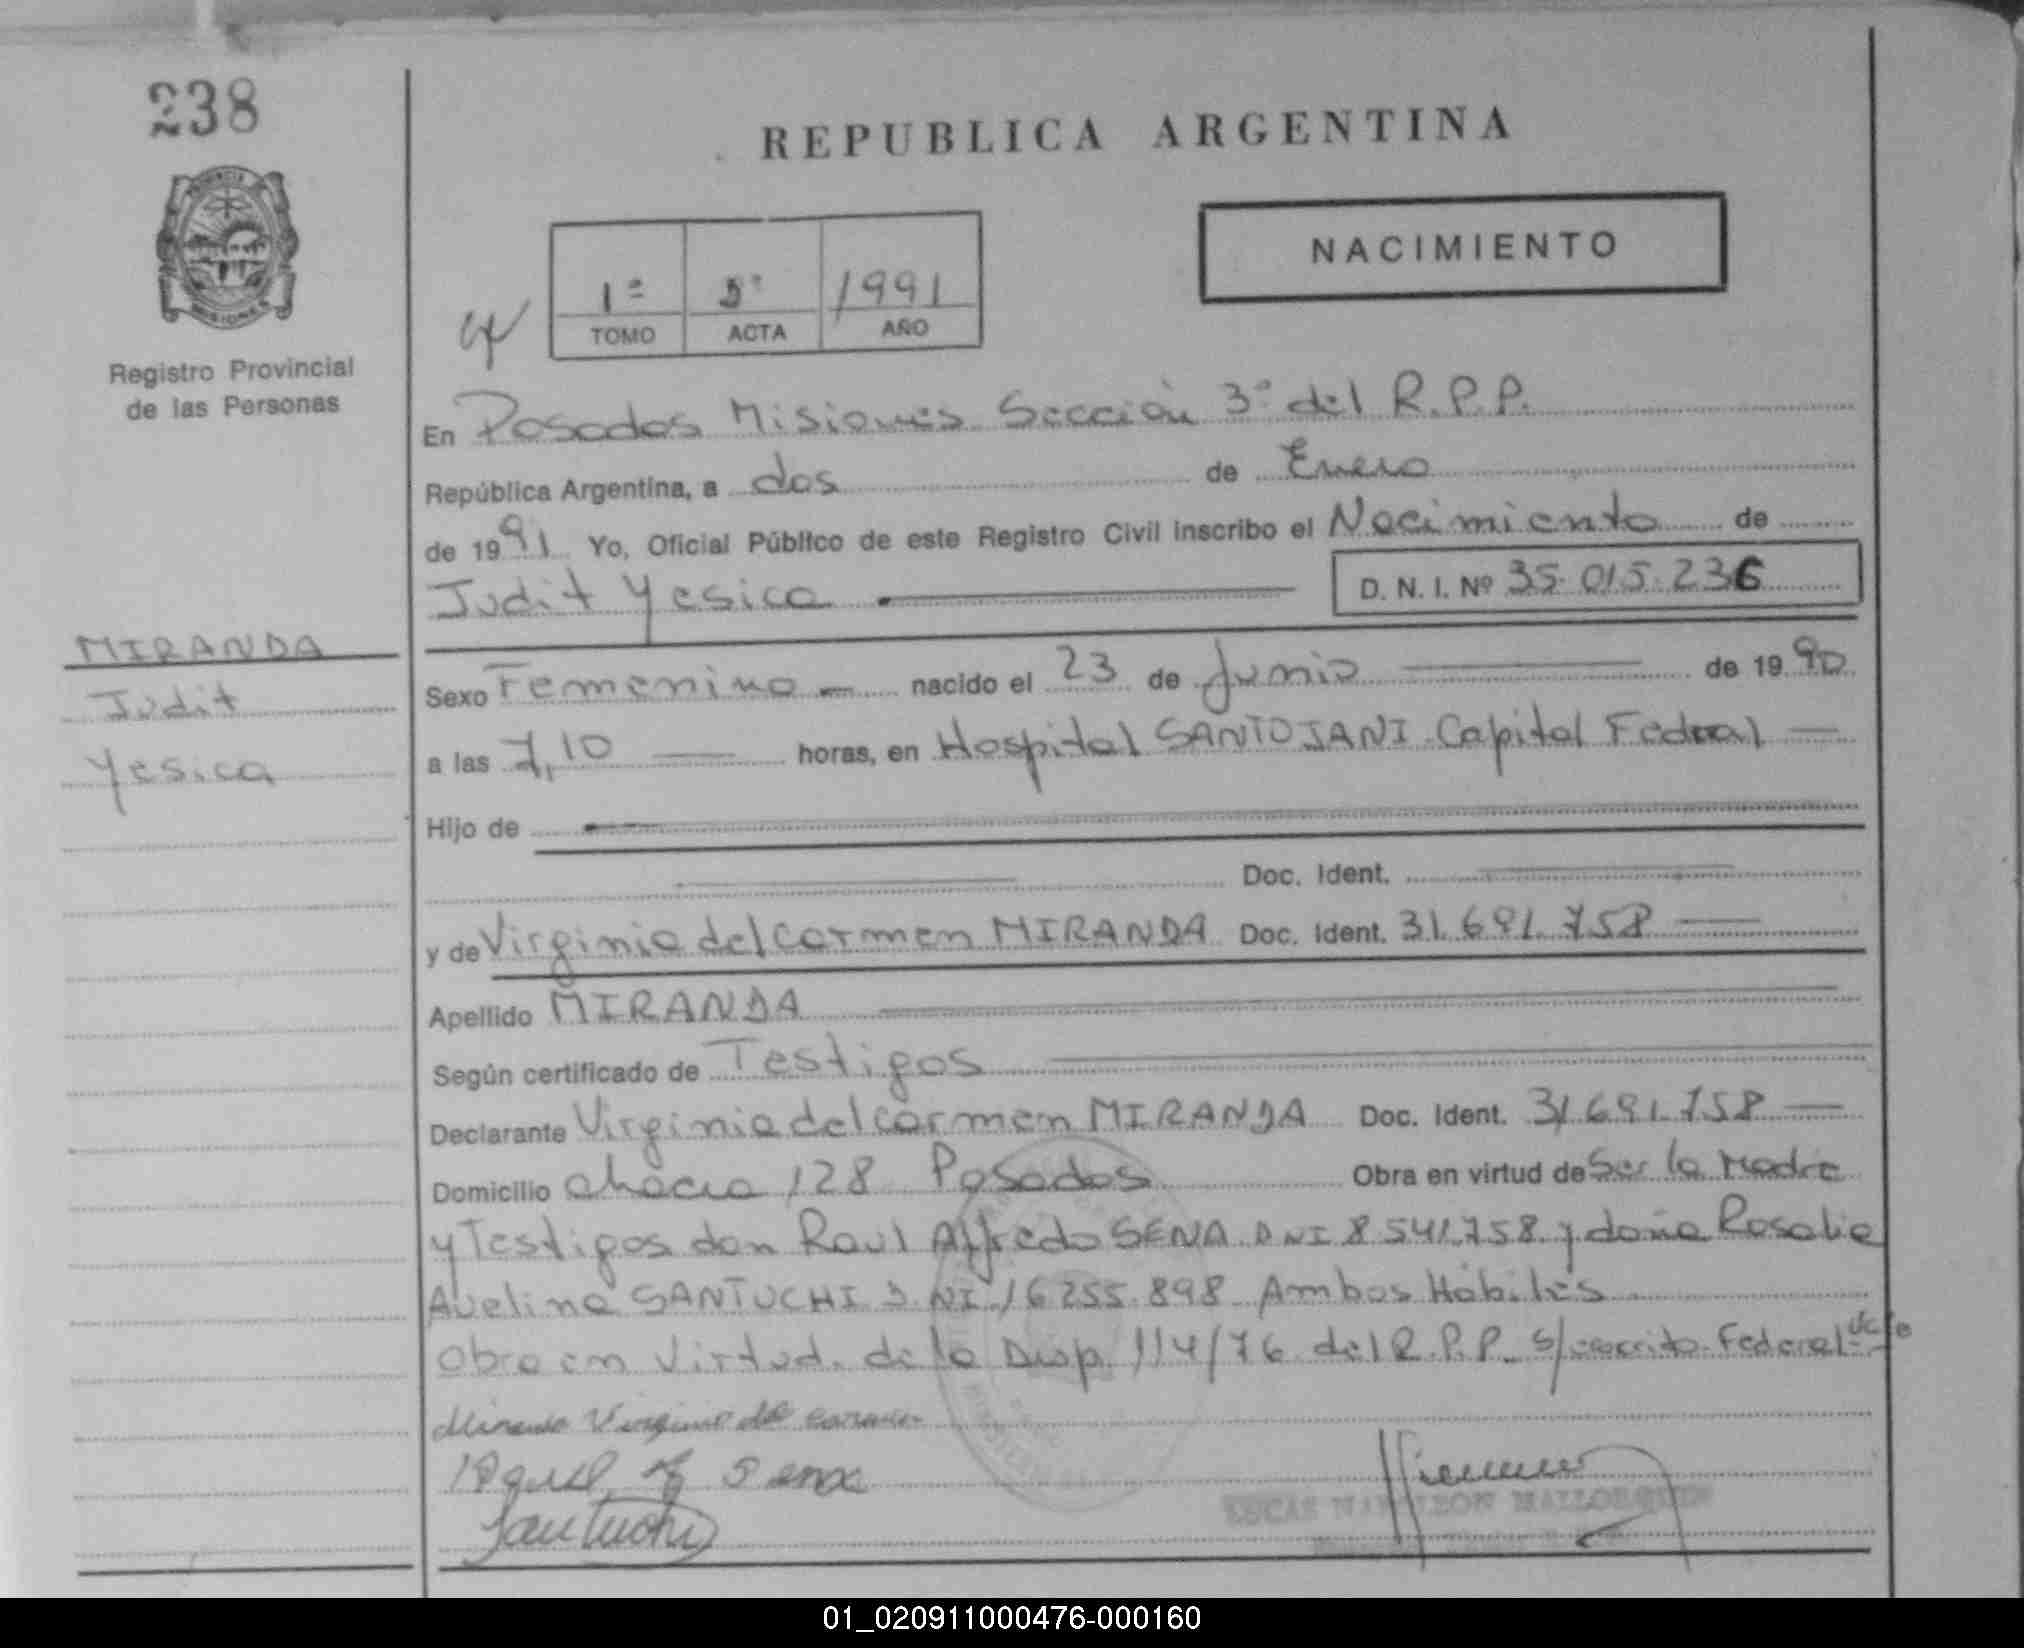 238
REPUBLICA ARGENTINA
NACIMIENTO
1º 5º 1991
TOMO ACTA AÑO
PROVINCIA
MISIONES
Registro Provincial
de las Personas
En Posadas Misiones Sección 3º del R.P.P.
República Argentina, a dos de Enero
de 1991 Yo, Oficial Público de este Registro Civil inscribo el Nacimiento de
Judit Yesica D. N. I. Nº 35.015.236
MIRANDA
Judit
Yesica
Sexo Femenino nacido el 23 de Junio de 1990
a las 7,10 horas, en Hospital SANTOJANI Capital Federal
Hijo de
Doc. Ident.
y de Virginia del Carmen MIRANDA Doc. Ident. 31.691.758
Apellido MIRANDA
Según certificado de Testigos
Declarante Virginia del Carmen MIRANDA Doc. Ident. 31.691.758
Domicilio Chacra 128 Posadas Obra en virtud de Ser la Madre
y Testigos don Raul Alfredo SENA DNI 8.541.758 y doña Rosalia
Avelina SANTUCHI DNI 16.255.898 Ambos Hábiles
Obra en Virtud de la Disp. 114/76 del R.P.P. S/ Federal
Miranda Virginia del Carmen
Raul A Sena
Santuchi
LUCAS NAPOLEON MALLORQUIN
01_020911000476-000160